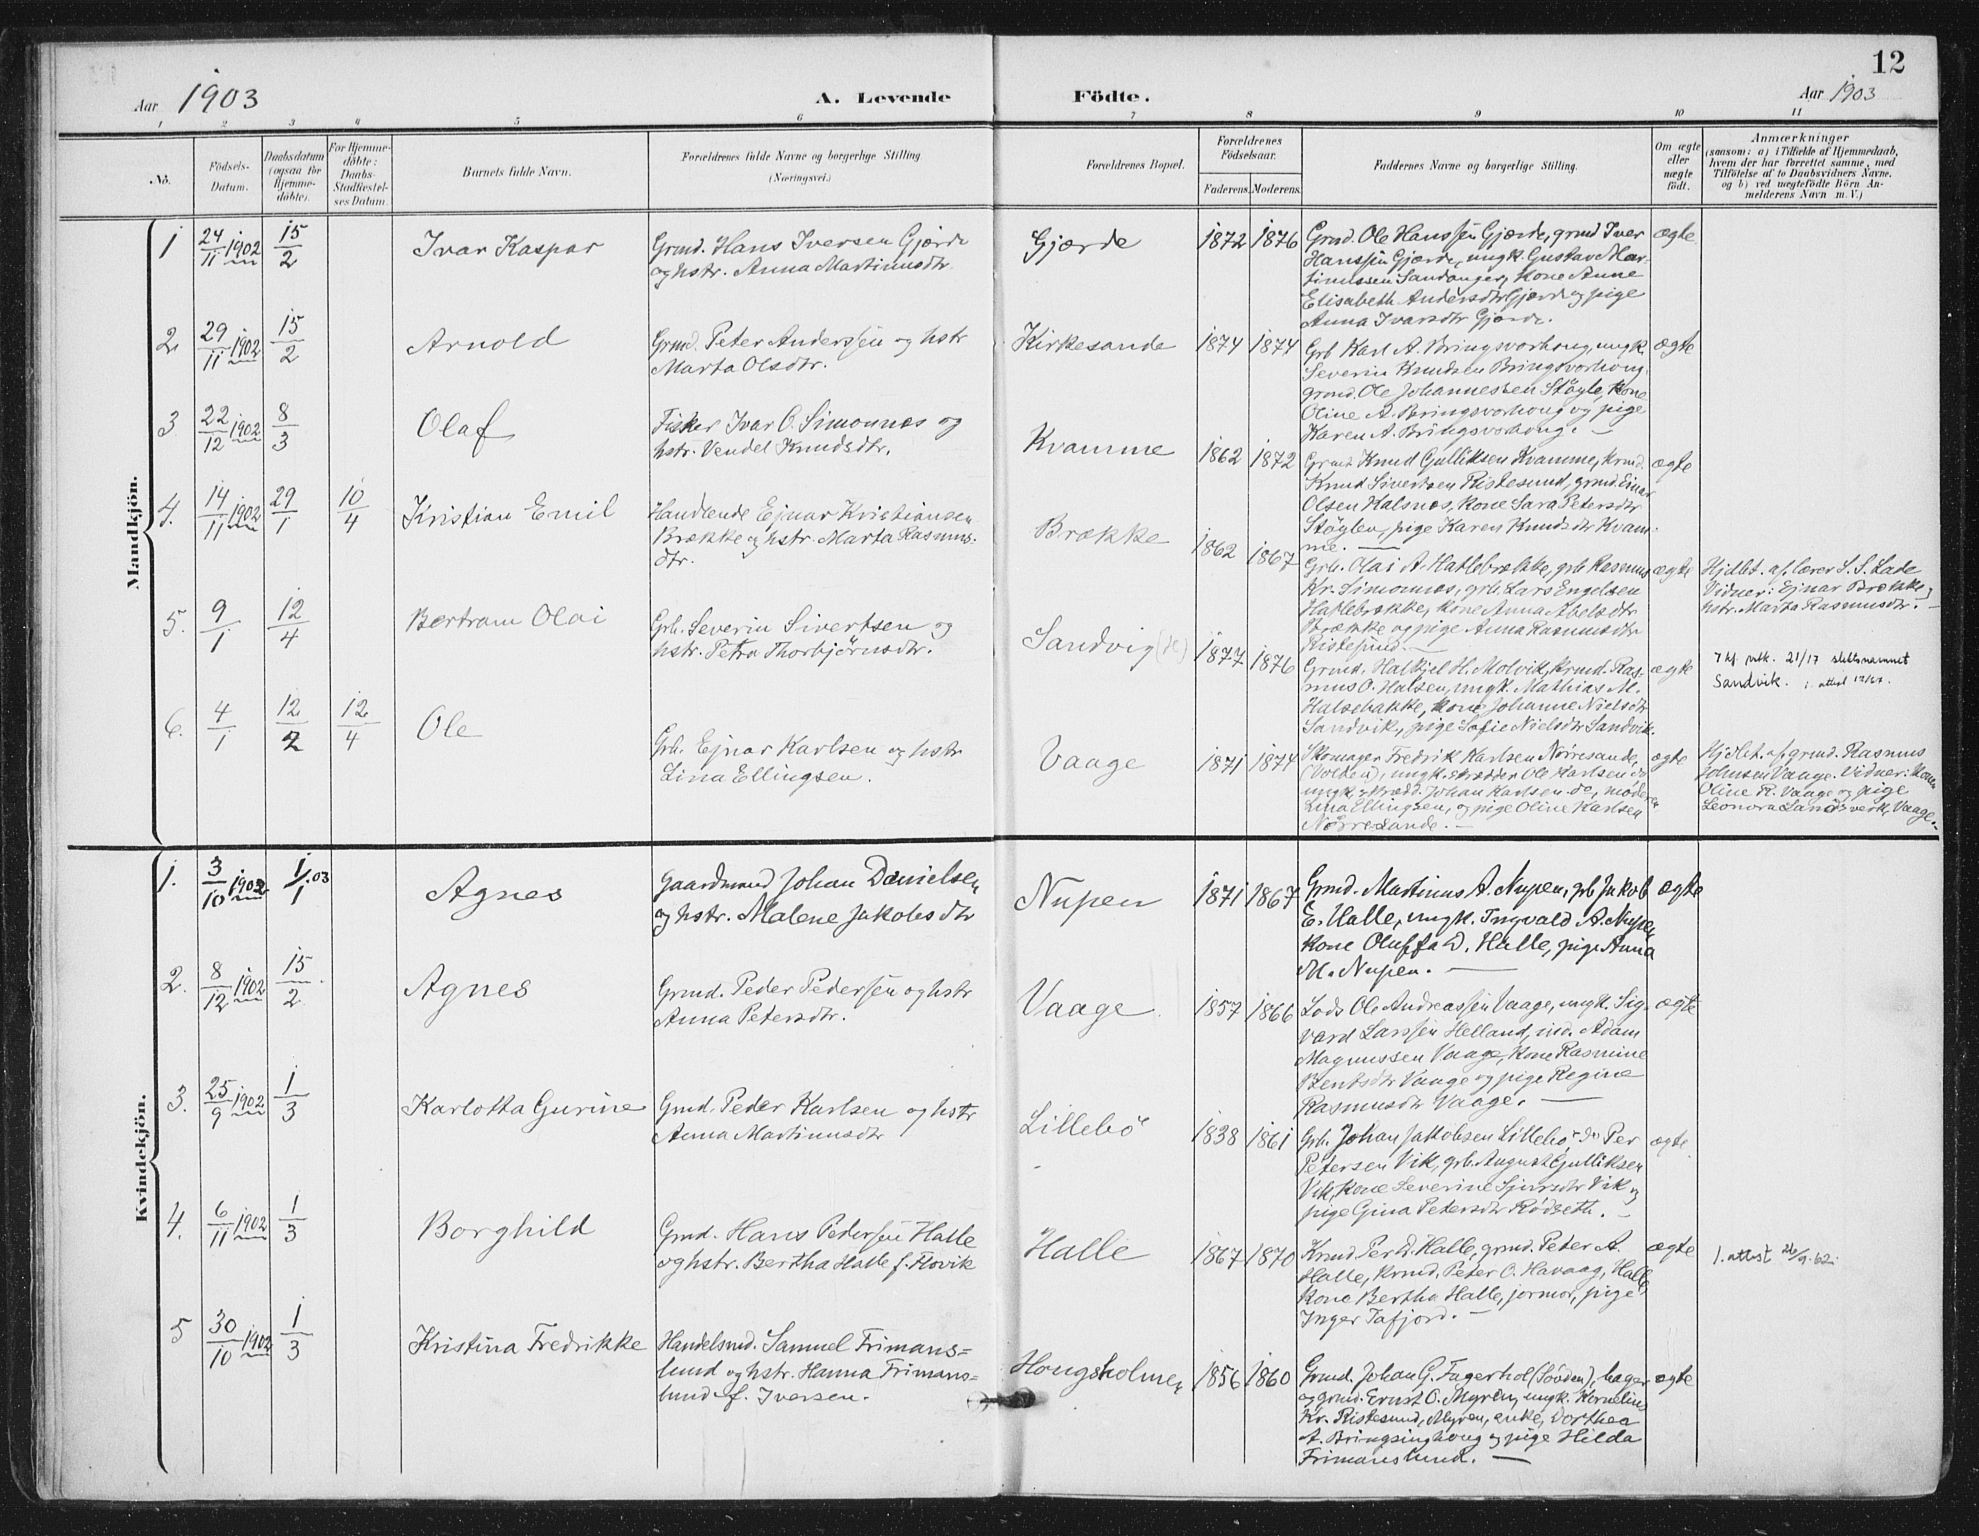 12
Aar 1903
A. Levende Födte.
Aar 1903
1 2 3 4 5 6 7 8 9 10 11
No.
Födsels-
Datum.
Daabsdatum
(ogsaa for
Hjemme-
döbte).
For Hjemme-
döbte:
Daabs-
Stadfæstel-
ses Datum.
Barnets fulde Navn.
Forældrenes fulde Navne og borgerlige Stilling.
(Næringsvei.)
Forældrenes Bopæl.
Forældrenes
Födselsaar.
Faderens. Moderens.
Faddernes Navne og borgerlige Stilling.
Om ægte
eller
uægte
födt.
Anmærkninger
(saasom: a) i Tilfælde af Hjemmedaab,
hvem der har forrettet samme, med
Tilföielse af to Daabsvidners Navne,
og b) ved uægtefödte Börn An-
melderens Navn m. V.)
Mandkjön.
1 24/11 1902 15/2 Ivar Kaspar
Grmd. Hans Iversen Gjærde
og hstr. Anna Martinusdtr.
Gjærde 1872 1876
Grmd. Ole Hanssen Gjærde, grmd Iver
Hanssen Gjærde, ungk. Gustav Mar-
tinussen Sandanger, kone Anne
Elisabeth Andersdtr Gjærde og pige
Anna Ivarsdtr Gjærde.
ægte
2 29/11 1902 15/2 Arnold
Grmd. Peter Anderssen og hstr
Marta Olsdtr.
Kirkesande 1874 1874
Grb Karl A. Bringsvorhoug, ungk.
Severin Knudsen Bringsvorhoug
grmd. Ole Johannessen Støyle, kone
Oline A. Bringsvorhoug og pige
Karen A. Bringsvorhoug. —
ægte
3 22/12 1902 8/3 Olaf
Fisker Ivar O. Simonnes og
hstr. Vendel Knudsdtr.
Kvamme 1862 1872
Grmd Knud Gulliksen Kvamme, krmd.
Knud Sivertsen Riskesund, grmd Einar
Olsen Halsnæs, kone Sara Petersdtr
Støylen, pige Karen Knudsdtr Kvam-
me. —
ægte
4. 14/11 1902 29/1 10/4 Kristian Emil
Handlende Ejnar Kristiansen
Brække og hstr. Marta Rasmus-
dtr.
Brække 1862 1867
Grb. Olai A. Hatlebrække, grb Rasmus
Kr. Simonnes, grb. Lars Engelsen
Hatlebrække, kone Anna Abelsdtr
Brække og pige Anna Rasmusdtr
Riskesund. —
ægte
Hjdbt. af lærer S. S. Lade
Vidner: Ejnar Brække,
hstr. Marta Rasmusdtr. —
5. 9/1 12/4 Bertram Olai
Grb. Severin Sivertsen og
hstr. Petra Thorbjørnsdtr.
Sandvig (k) 1877 1876
Grmd. Halkjel H. Molvik, krmd. Ras-
mus O. Halsen, ungk. Mathias M.
Halsebakke, kone Johanne Nielsdtr
Sandvik, pige Sofie Nielsdtr Sandvik.
ægte
21/17 slektsnavnet
Sandvik. attest 12/67.
6. 4/1 12/2 12/4 Ole
Grb. Ejnar Karlsen og hstr
Lina Ellingsen.
Vaage 1871 1874
Skomager Fredrik Karlsen Nørresande,
(Volden), ungk. skrædder Ole Karlsen do
ungk. skrædd. Johan Karlsen do, moderen
Lina Ellingsen, og pige Oline Karlsen
Nørresande. —
ægte
Hjdbt. af grmd. Rasmus
Johnsen Vaage. Vidner: Konen
Oline R. Vaage og pige
Leonora Landsverk, Vaage.-
Kvindekjön.
1. 3/10 1902 1/1 03 Agnes
Gaardmand Johan Danielsen
og hstr. Malene Jakobsdtr
Nupen 1871 1867
Grmd. Martinus A. Nupen, grb Jakob
E. Halle, ungk. Ingvald A. Nupen
kone Oluffa D. Halle, pige Anna
M. Nupen. —
ægte
2. 8/12 1902 15/2 Agnes
Grmd. Peder Pedersen og hstr
Anna Petersdtr.
Vaage 1857 1866
Lods Ole Andreassen Vaage, ungk. Sig-
vard Larssen Helland, ind. Adam
Magnussen Vaage, kone Rasmine
Bentsdtr Vaage og pige Regine
Rasmusdtr Vaage. —
ægte
3. 25/9 1902 1/3 Karlotta Gurine
Gmd. Peder Karlsen og hstr
Anna Martinusdtr
Lillebö 1838 1861
Grb. Johan Jakobsen Lillebö, do Per
Petersen Vik, grb. August Gulliksen
Vik, kone Severine Sjursdtr Vik og
pige Gina Petersdtr Rödseth. —
ægte
4. 6/11 1902 1/3 Borghild
Grmd. Hans Pedersen Halle
og hstr. Bertha Halle f. Flovik
Halle 1867 1870
Krmd Per D. Halle, grmd. Peter A.
Halle, krmd. Peter O. Havaag, Halle
kone Bertha Halle, jormor, pige
Inger Tafjord. —
ægte
1. attest 26/9.62.
5 30/10 1902 1/3 Kristina Fredrikke
Handelsmd. Samuel Frimans=
lund og hstr. Hanna Frimans=
lund f. Iversen.
Hougsholmen 1856 1860
Grmd. Johan G. Fagerhol (Søvden), bager
og grmd. Ernst O. Myren, ungk. Kornelius
Kr. Riskesund, Myren, enke, Dorthea
A. Bringsinghoug og pige Hilda
Frimanslund. —
ægte